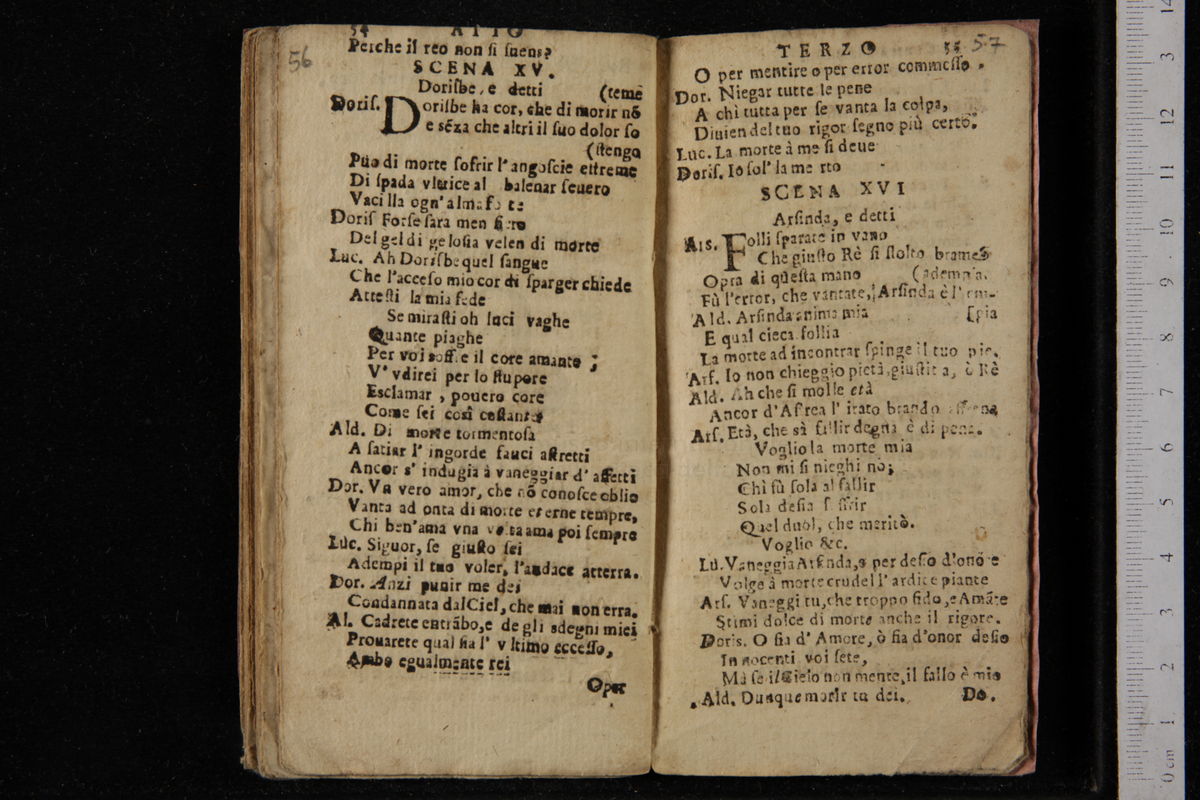 54 ATTO
56
Perche il reo non si suens?
SCENA XV.
Dorisbe, e detti (teme
Doris. Dorisbe ha cor, che di morir nõ
e sẽza che altri il suo dolor so
(stengo
Può di morte sofrir l'angoscie estreme
Di spada vltrice al balenar seuero
Vacilla ogn'alma fo te
Doris Forse sara men fiero
Del gel di gelosia velen di morte
Luc. Ah Dorisbe quel sangue
Che l'acceso mio cor di sparger chiede
Attesti la mia fede
Se mirasti oh luci vaghe
Quante piaghe
Per voi soff.e il core amante ;
V' vdirei per lo stupore
Esclamar , pouero core
Come sei così costante
Ald. Di morte tormentosa
A satiar l' ingorde fauci astretti
Ancor s' indugia à vaneggiar d' affetti
Dor. Vn vero amor, che nõ conosce oblio
Vanta ad onta di morte eterne tempre,
Chi ben'ama vna volta ama poi sempre
Luc. Siguor, se giusto sei
Adempi il tuo voler, l'audace atterra.
Dor. Anzi punir me dei
Condannata dal Ciel, che mai non erra.
Al. Cadrete entrãbo,e degli sdegni miei
Prouarete qual sia l' vltimo eccesso,
Ambo egualmente rei
Oper
TERZO 55
57
O per mentire o per error commesso .
Dor. Niegar tutte le pene
A chi tutta per se vanta la colpa,
Diuien del tuo rigor segno più certo.
Luc. La morte à me si deue
Doris. Io sol' la me rto
SCENA XVI
Arsinda, e detti
Ars. Folli sparate in vano
Che giusto Rè si stolto brames
Opra di questa mano (adempia.
Fù l'error, che vantate, Arsinda è l' em-
Ald. Arsinda anima mia [pia
E qual cieca follia
La morte ad incontrar spinge il tuo pie.
Ars. Io non chieggio pietà, giustitia, ò Rè
Ald. Ah che si molle età
Ancor d'Astrea l' irato brando affrena
Ars. Età, che sà fallir degna è di pena.
Voglio la morte mia
Non mi si nieghi nò;
Chi fù sola al fallir
Sola desia soffrir
Quel duol, che meritò.
Voglio &c.
Lu. Vaneggia Arsinda,o per desio d'onore
Volge à morte crudel l' ardite piante
Ars. Vaneggi tu, che troppo fido, e Amãte
Stimi dolce di morte anche il rigore.
Doris. O sia d' Amore, ò sia d'onor desio
Innocenti voi sete,
Ma se il Cielo non mente, il fallo è mio
Ald. Dunque morir tu dei. Do.
14
13
12
11
10
9
8
7
6
5
4
3
2
1
0 cm